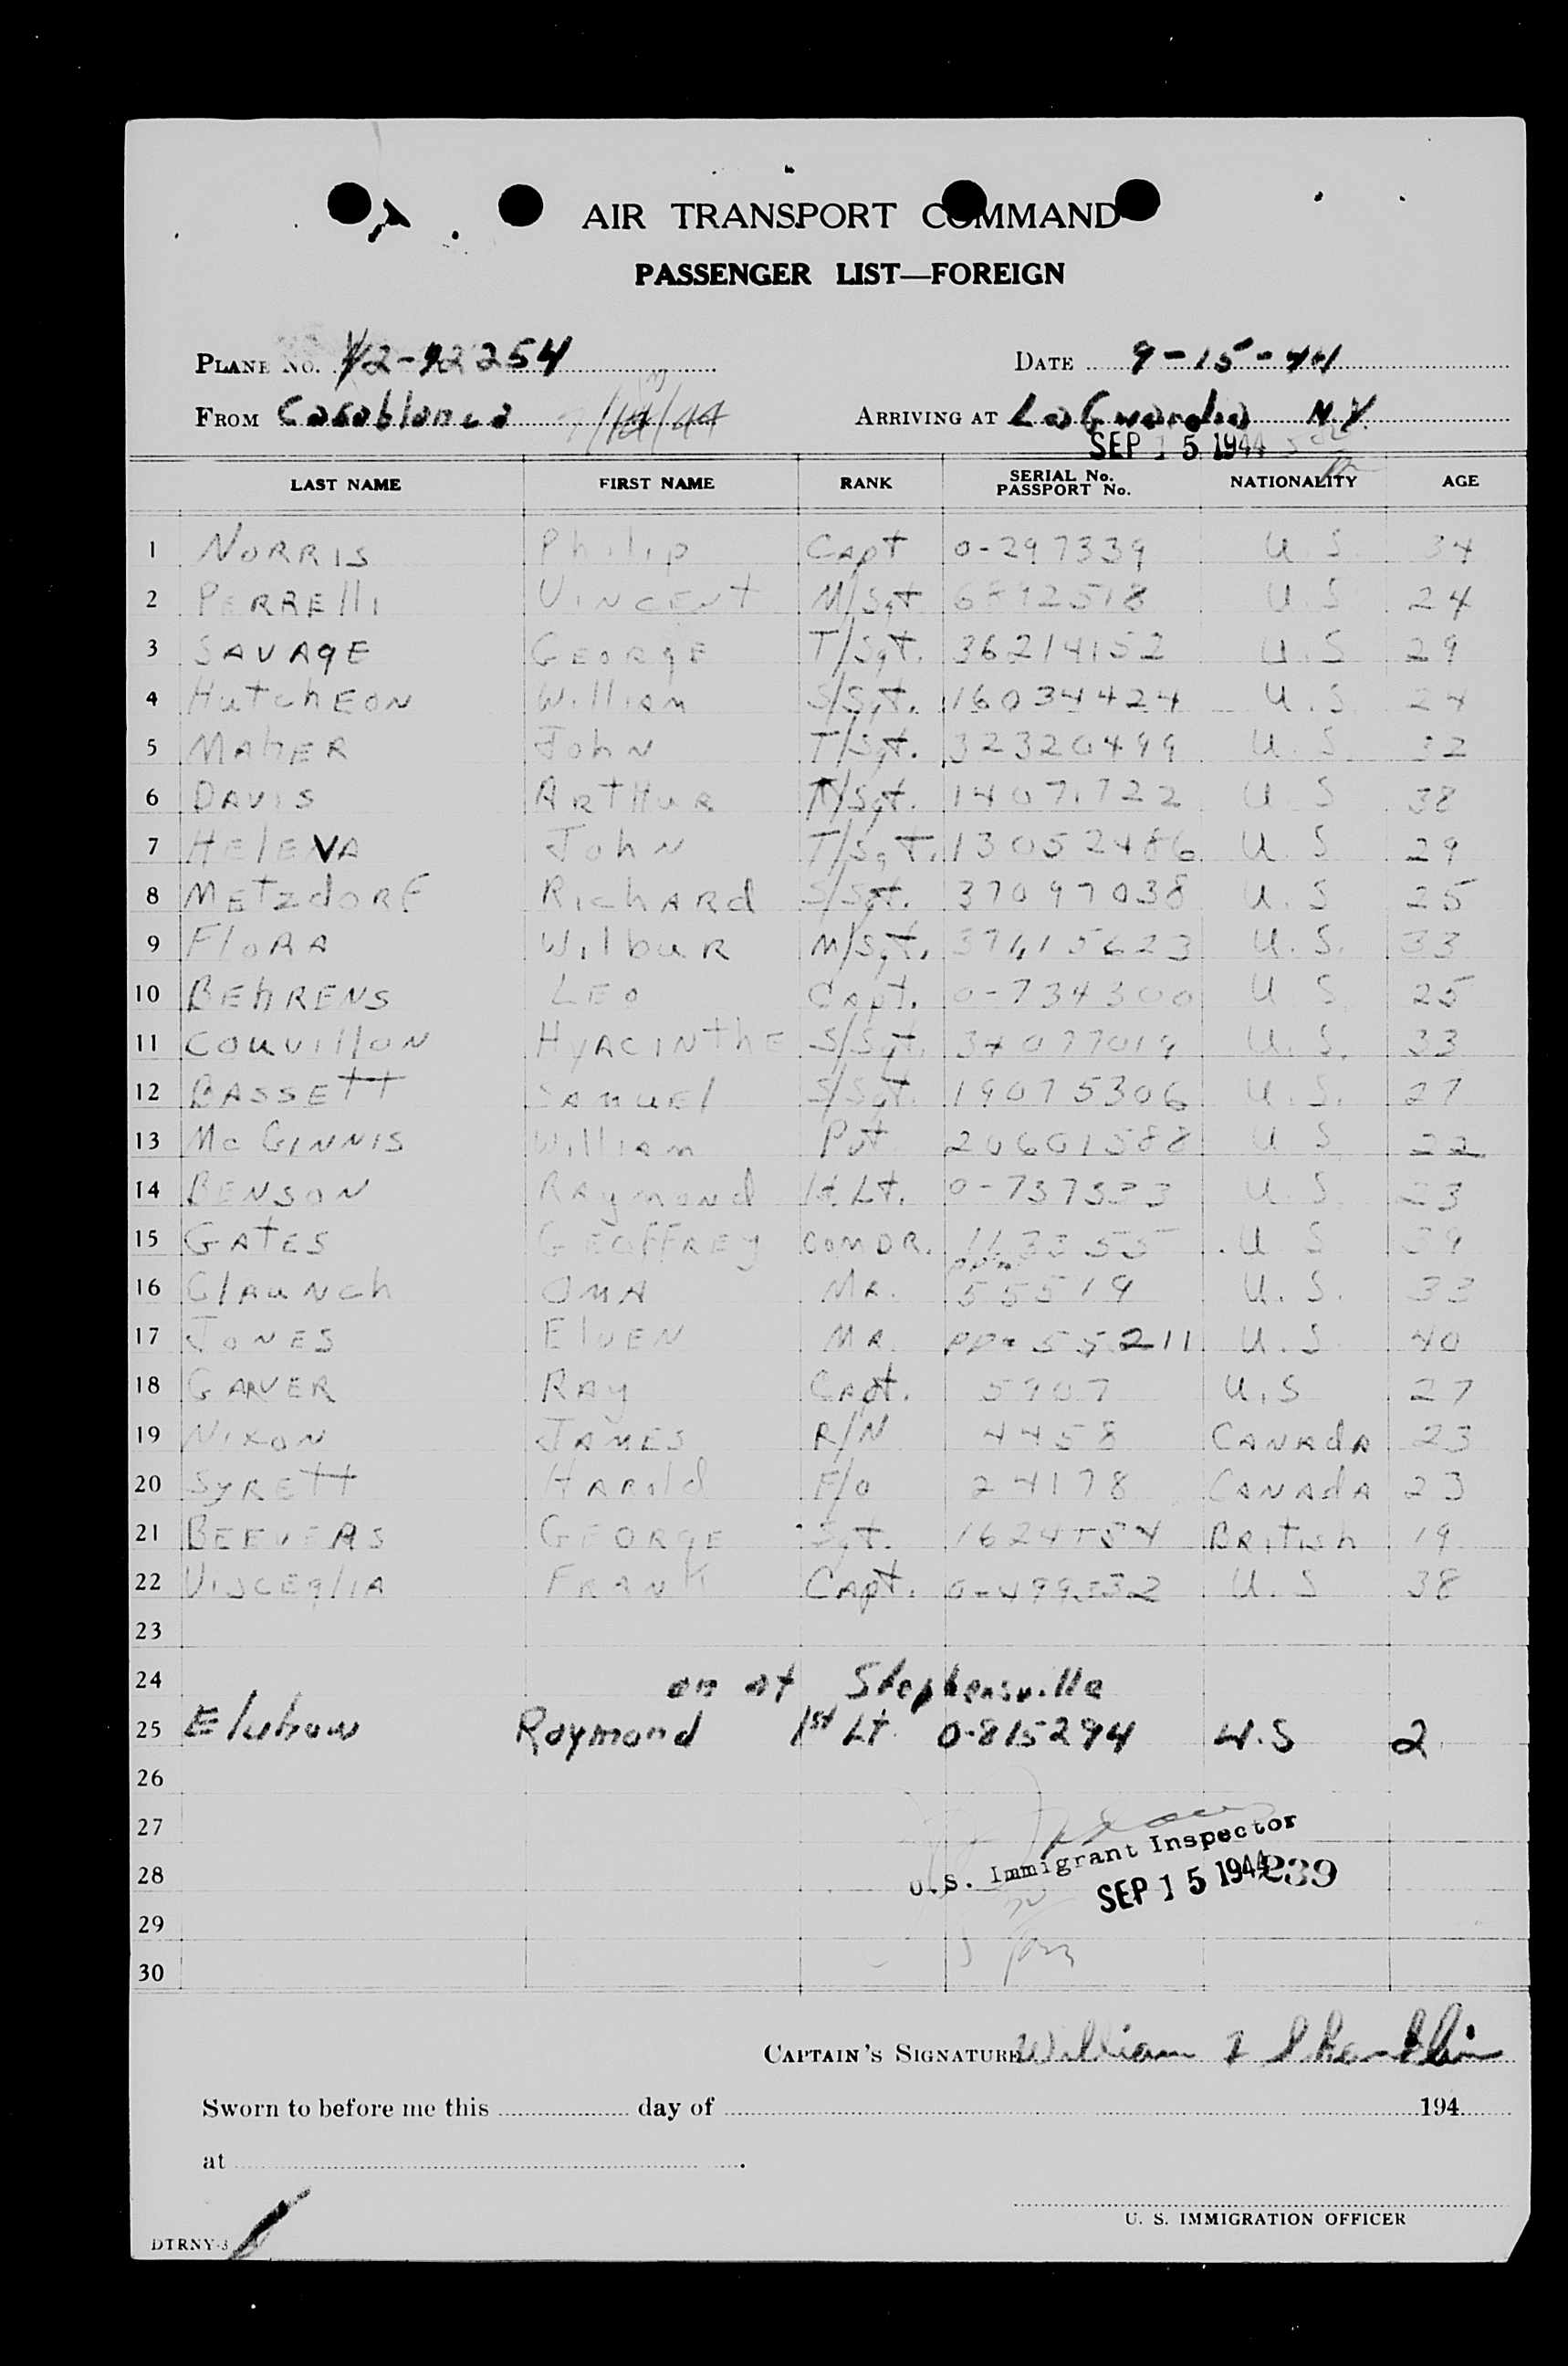 AIR TRANSPORT COMMAND
PASSENGER LIST—FOREIGN
PLANE NO. 42-92254 DATE 9-15-44
FROM Casablanca 9/14/44 ARRIVING AT LaGuardia N.Y.
SEP 15 1944
LAST NAME FIRST NAME RANK SERIAL No. PASSPORT No. NATIONALITY AGE
1 NORRIS Philip Capt 0-297339 U.S. 34
2 PERRElli VINCENT M/Sgt 6892518 U.S 24
3 SAVAgE GEORgE T/Sgt. 36214152 U.S 29
4 HutchEON William S/Sgt. 16034424 U.S. 24
5 MAhER John T/Sgt. 32320499 U.S 32
6 DAVIS ARTHUR T/Sgt. 14071722 U.S 38
7 HElEVA John T/Sgt. 13052486 U.S 29
8 METzdORF RIchARd S/Sgt. 37097038 U.S 25
9 FloRA WilbuR M/Sgt. 37415623 U.S. 33
10 BEhRENS LEO Capt. 0-734300 U.S 25
11 COUVIllON HyACINThE S/Sgt. 34077019 U.S. 33
12 BASSETT SAMUEl S/Sgt. 19075306 U.S. 27
13 McGINNIS William Pvt 20601588 U.S 22
14 BENSON RAymond 1t.Lt. 0-757533 U.S. 23
15 GATES GEOFFREy COMDR. 113355 U S 39
16 ClAUNch OMA MR. ppn 55519 U.S. 33
17 JONES ElVEN MR. ppn 55211 U.S 40
18 GARVER RAy Capt. 5907 U.S 27
19 NIXON JAMES R/N 4458 CANAdA 23
20 SyRETT HARold F/O 24178 CANAdA 23
21 BEEVERS GEORgE Sgt. 1624554 BRitish 19
22 VISCEglIA FRANK Capt. 0-499532 U.S 38
23
24 on at Stephensville
25 Raymond 1st Lt. 0-815294 U.S 2
26
27
U.S. Immigrant Inspector
28 SEP 15 1944 239
29
30
CAPTAIN'S SIGNATURE William
Sworn to before me this day of 194
at .
U. S. IMMIGRATION OFFICER
DTRNY-3